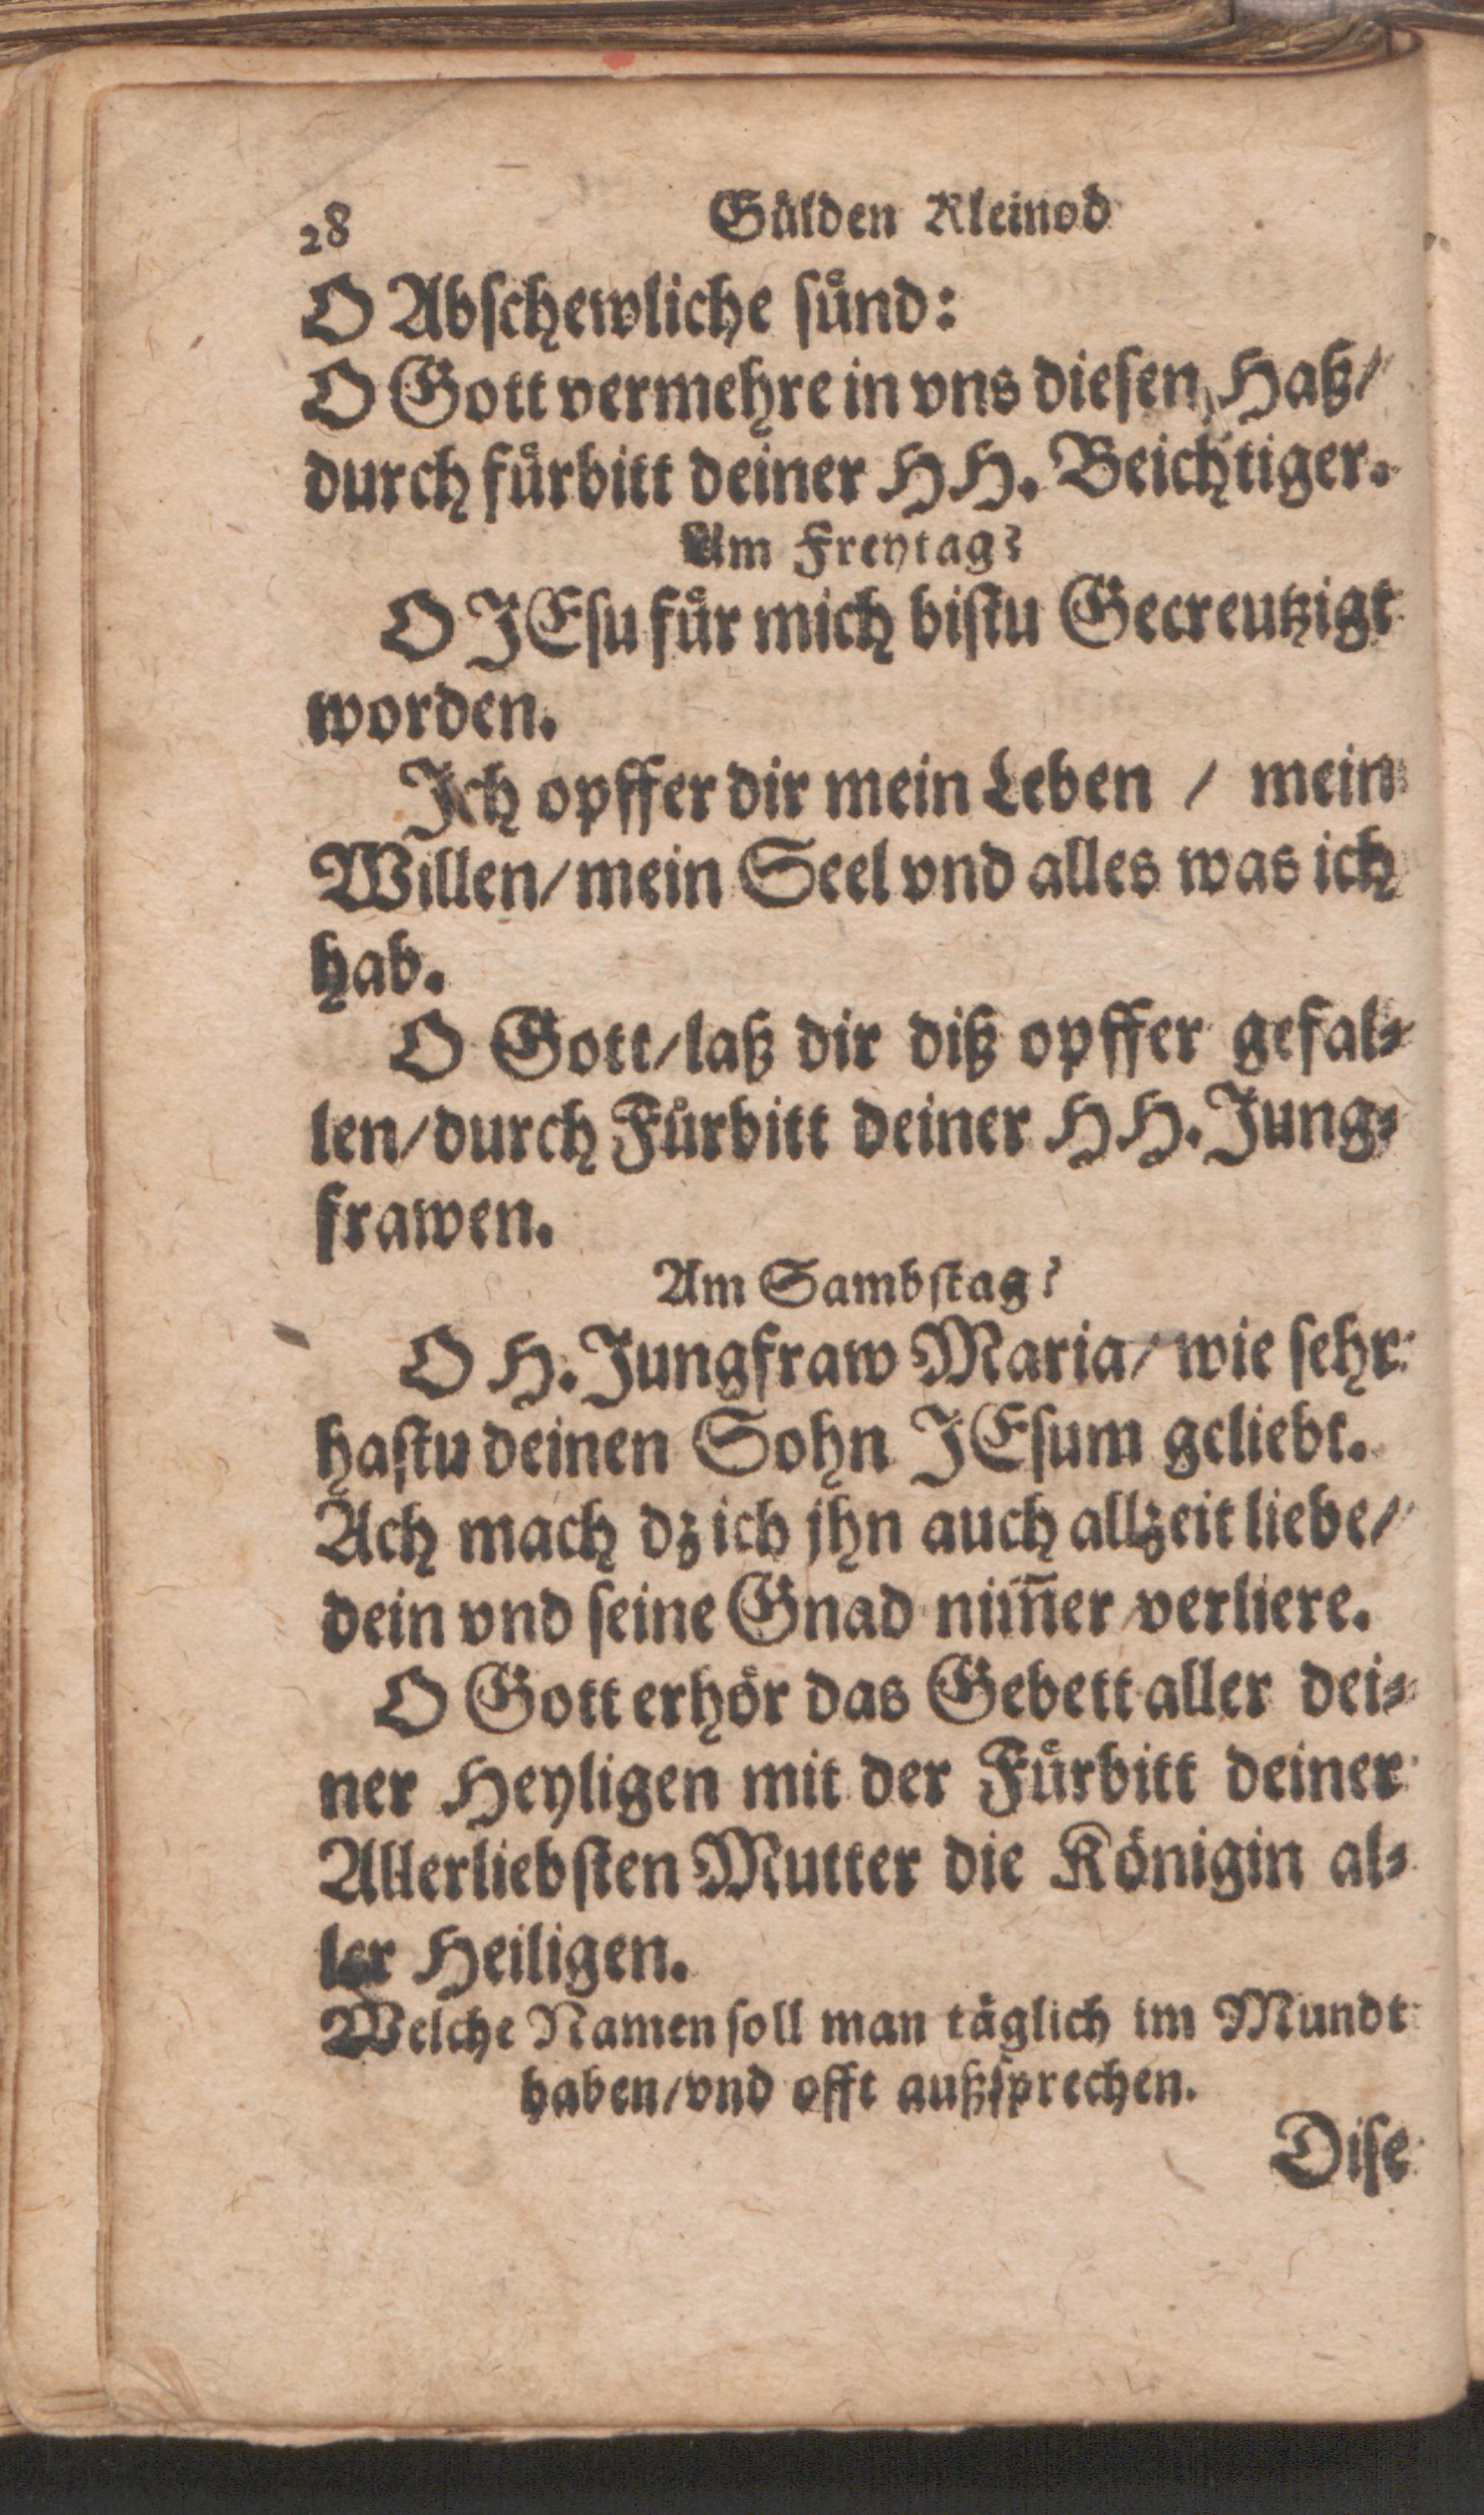 28 Gülden Kleinod
O Abschewliche sünd:
O Gott vermehre in vns diesen Haß/
durch fürbitt deiner HH. Beichtiger.
Am Freytag?
O JEsu für mich bistu Gecreutzigt
worden.
Ich opffer dir mein Leben / mein
Willen/mein Seel vnd alles was ich
hab.
O Gott/laß dir diß opffer gefal-
len/durch Fürbitt deiner HH. Jung-
frawen.
Am Sambstag?
O H. Jungfraw Maria/wie sehr
hastu deinen Sohn JEsum geliebt.
Ach mach dz ich jhn auch allzeit liebe/
dein vnd seine Gnad nim̅er verliere.
O Gott erhör das Gebett aller dei-
ner Heyligen mit der Fürbitt deiner
Allerliebsten Mutter die Königin al-
ler Heiligen.
Welche Namen soll man täglich im Mundt
haben/vnd offt außsprechen.
Dise